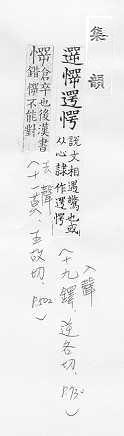 集韻
遻㦍遌愕 說文相遇驚也或
从心隸作遌愕
入聲
〈十九鐸，逆各切，P.730〉
倉卒也後漢書
錯㦍不能對
去聲
〈十一莫，五故切，P.502〉